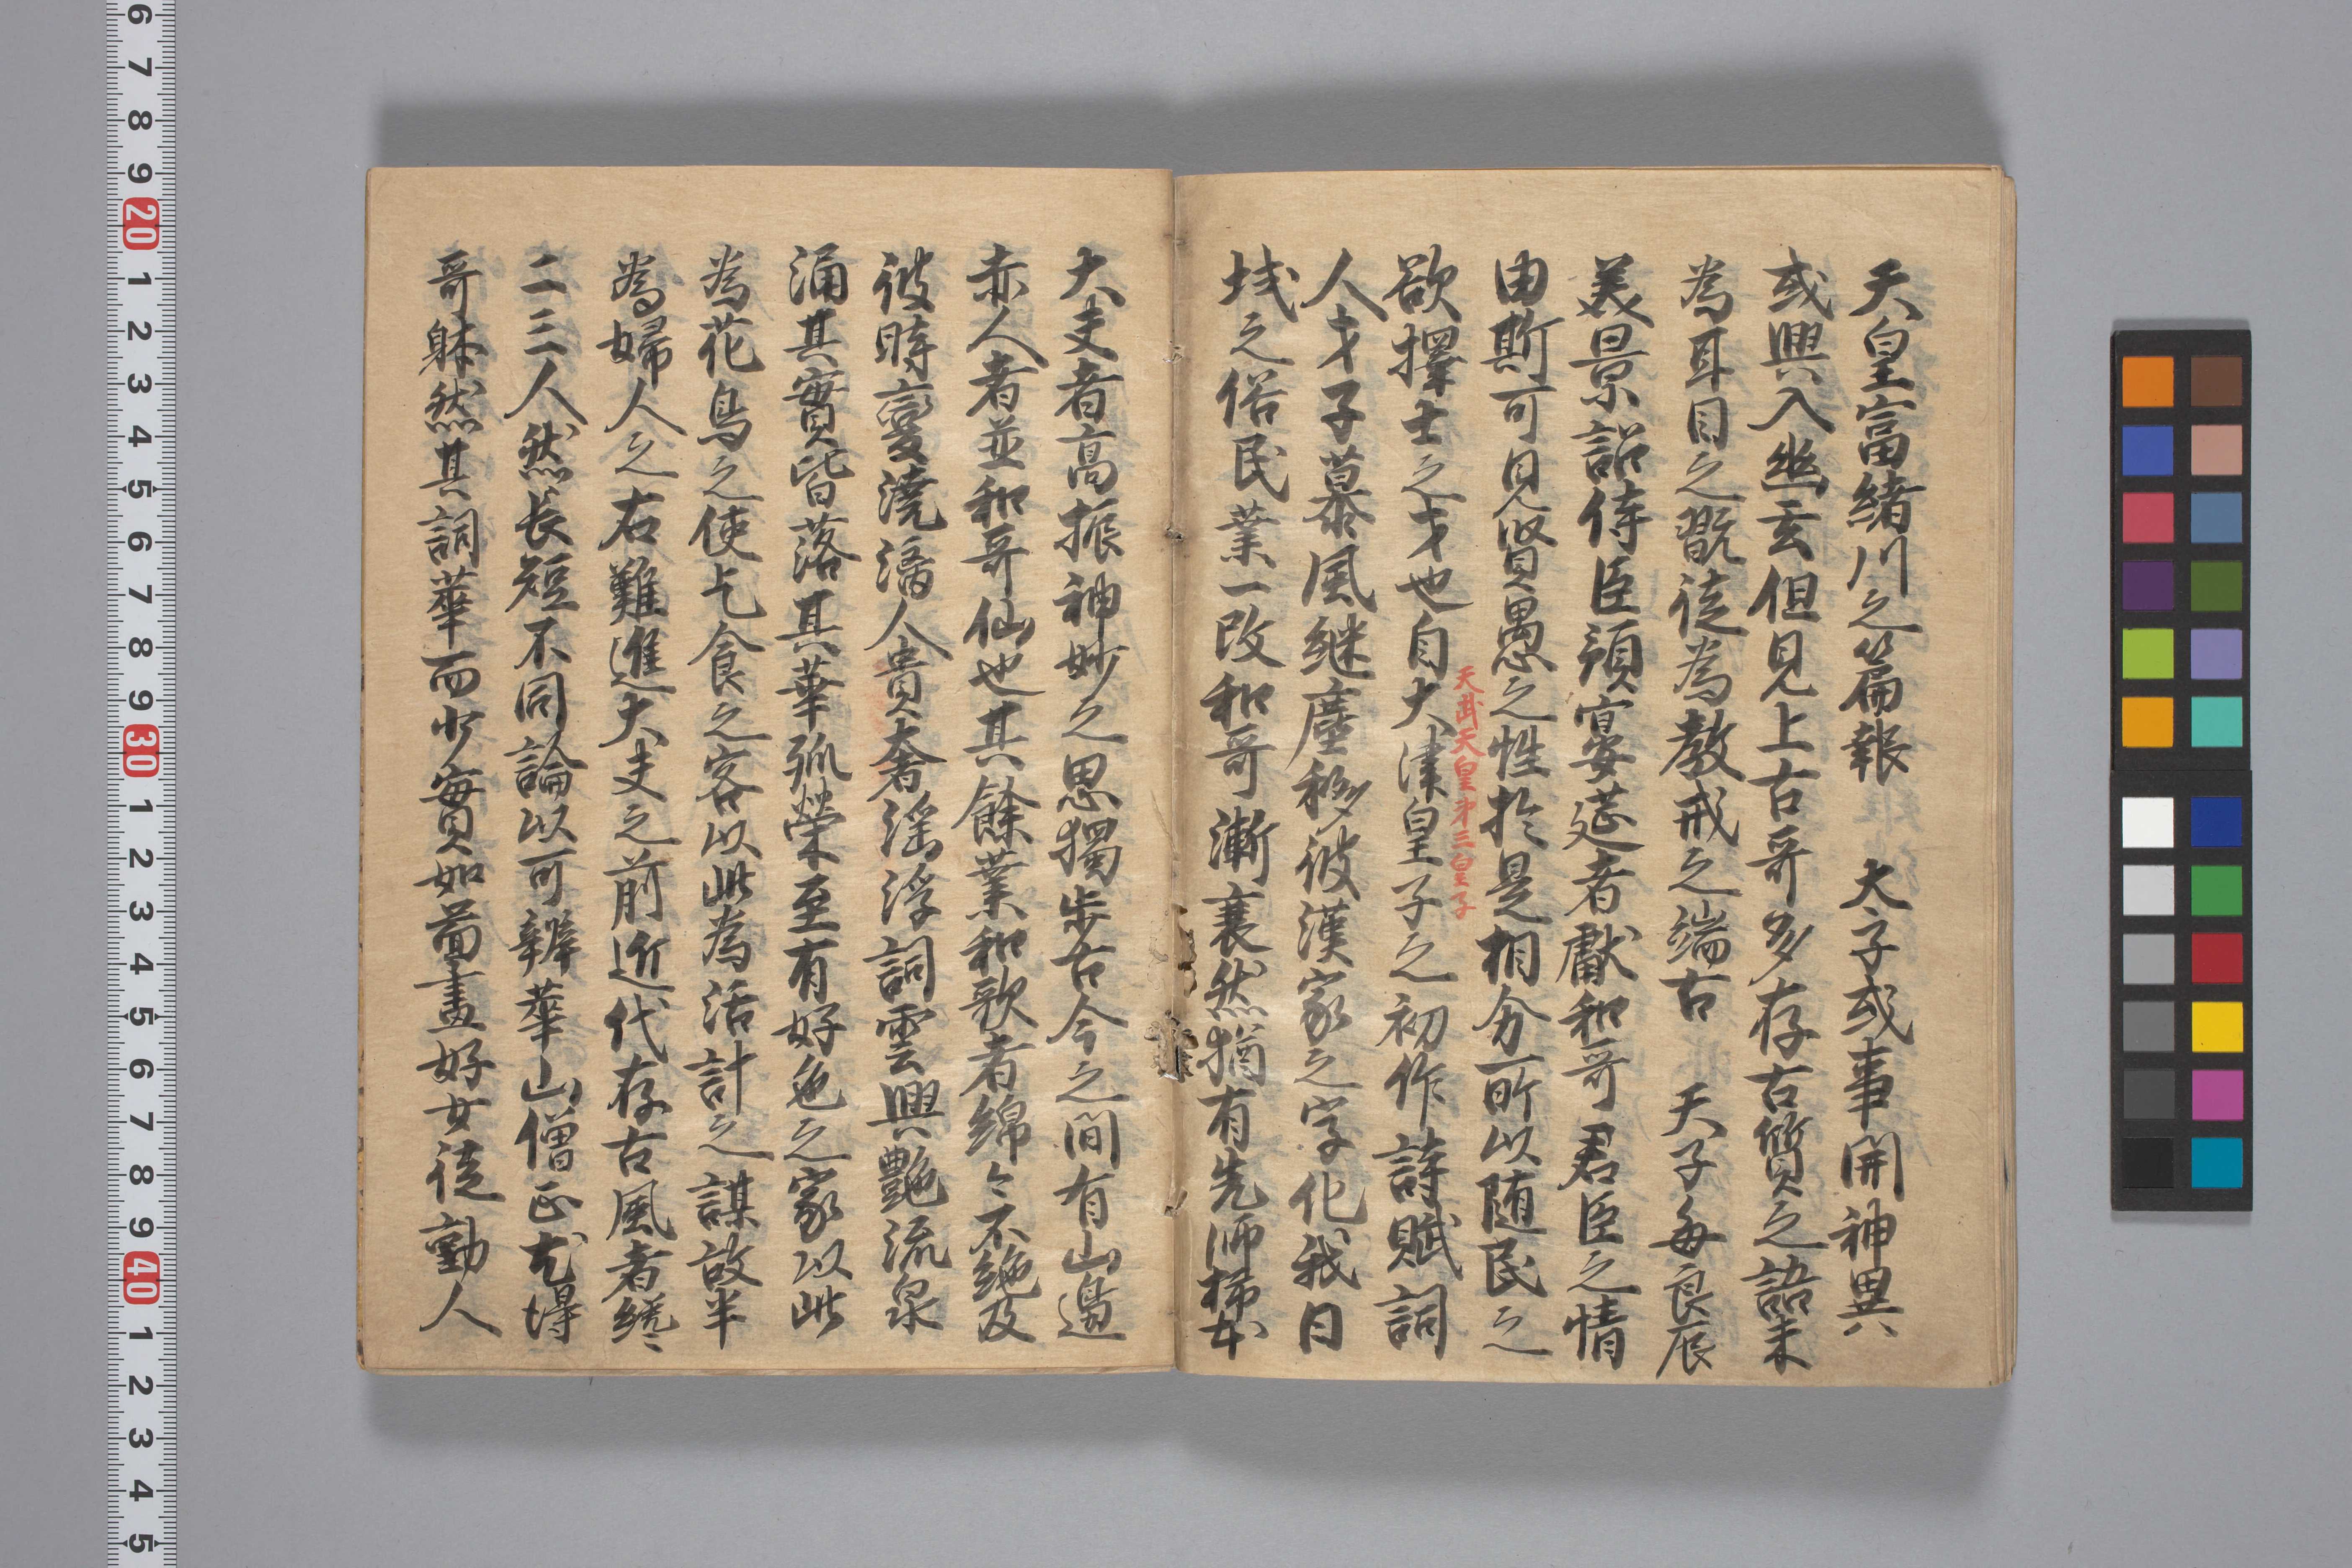 天皇富緒川之篇報　大子或事開神異
或興入幽玄但見上古哥多存古質之語未
為耳目之翫徒為教戒之端古　天子每良辰
美景詔侍臣預宴莚者獻和哥君臣之情
由斯可見賢愚之性於是相分所以随民之
欲擇士之才也自大津皇子之初作詩賦詞
天武天皇第三皇子
人才子慕風継塵移彼漢家之字化我日
域之俗民業一改和哥漸衰然猶有先師柿本
大夫者高振神妙之思獨步古今之間有山邊
赤人者並和哥仙也其餘業和歌者綿々不絶及
彼時變澆漓人貴奢淫浮詞雲興艶流泉
涌其實皆落其華孤榮至有好色之家以此
為花鳥之使乞食之客以此為活計之謀故半
為婦人之右難進大夫之前近代存古風者纔
二三人然長短不同論以可辨華山僧正尤得
哥躰然其詞華而少實如啚畫好女徒動人
6 7 8 9 20 1 2 3 4 5 6 7 8 9 30 1 2 3 4 5 6 7 8 9 40 1 2 3 4 5